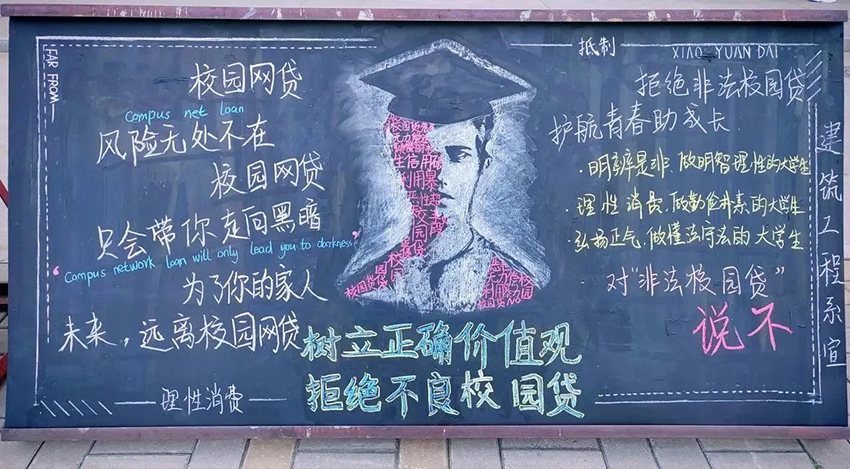 FAR FROM
校园网贷
campus net loan
风险无处不在
校园网贷
只会带你走向黑暗
"campus network loan will only lead you to darkness"
为了你的家人
未来，远离校园网贷
理性消费
树立正确价值观
拒绝不良校园贷
抵制
XIAO YUAN DAI
拒绝非法校园贷
护航青春助成长
·明辨是非，做明智理性的大学生
·理性消费，做勤俭朴素的大学生
·弘扬正气，做懂法守法的大学生
对"非法校园贷"
说不
建筑工程系宣